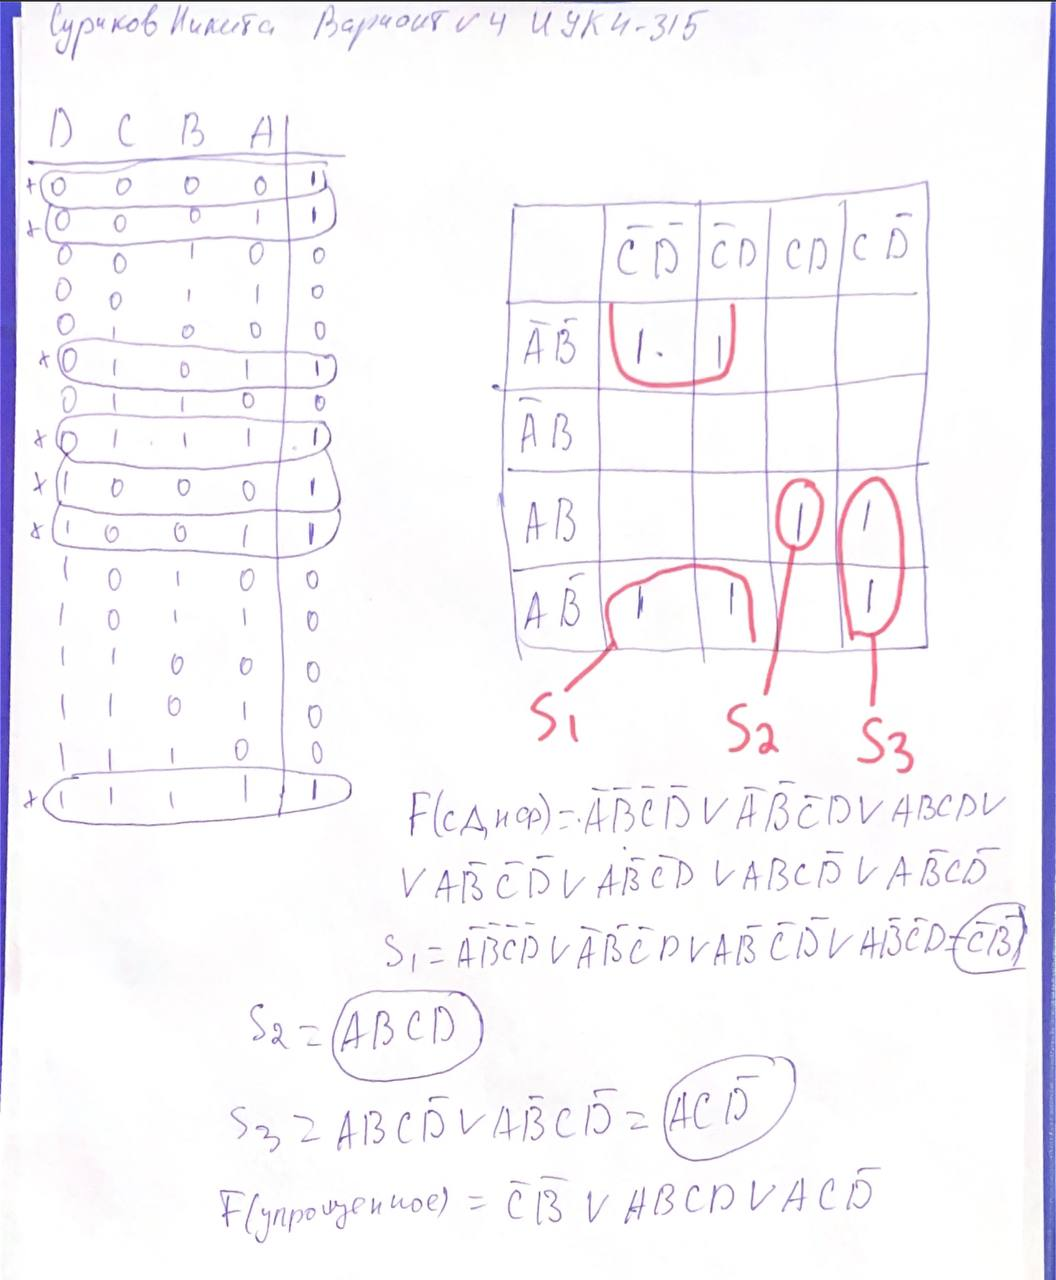 Суриков Никита Вариант √4 ИУК4-315
D C B A
+ 0 0 0 0 1
+ 0 0 0 1 1
0 0 1 0 0
0 0 1 1 0
0 1 0 0 0
+ 0 1 0 1 1
0 1 1 0 0
+ 0 1 1 1 1
+ 1 0 0 0 1
+ 1 0 0 1 1
1 0 1 0 0
1 0 1 1 0
1 1 0 0 0
1 1 0 1 0
1 1 1 0 0
+ 1 1 1 1 1
C̅ D̅ C̅ D CD C D̅
A̅ B̅ 1. 1
A̅ B
A B 1 1
A B̅ 1 1 1
S1 S2 S3
F(сДнф)=A̅B̅C̅D̅ V A̅B̅C̅D V ABCD V
V AB̅C̅D̅ V AB̅C̅D V ABCD̅ V AB̅CD̅
S1 = A̅B̅C̅D̅ V A̅B̅C̅D V AB̅C̅D̅ V AB̅C̅D = C̅B̅
S2 = ABCD
S3 = ABCD̅ V AB̅CD̅ = ACD̅
F(упрощенное) = C̅B̅ V ABCD V ACD̅